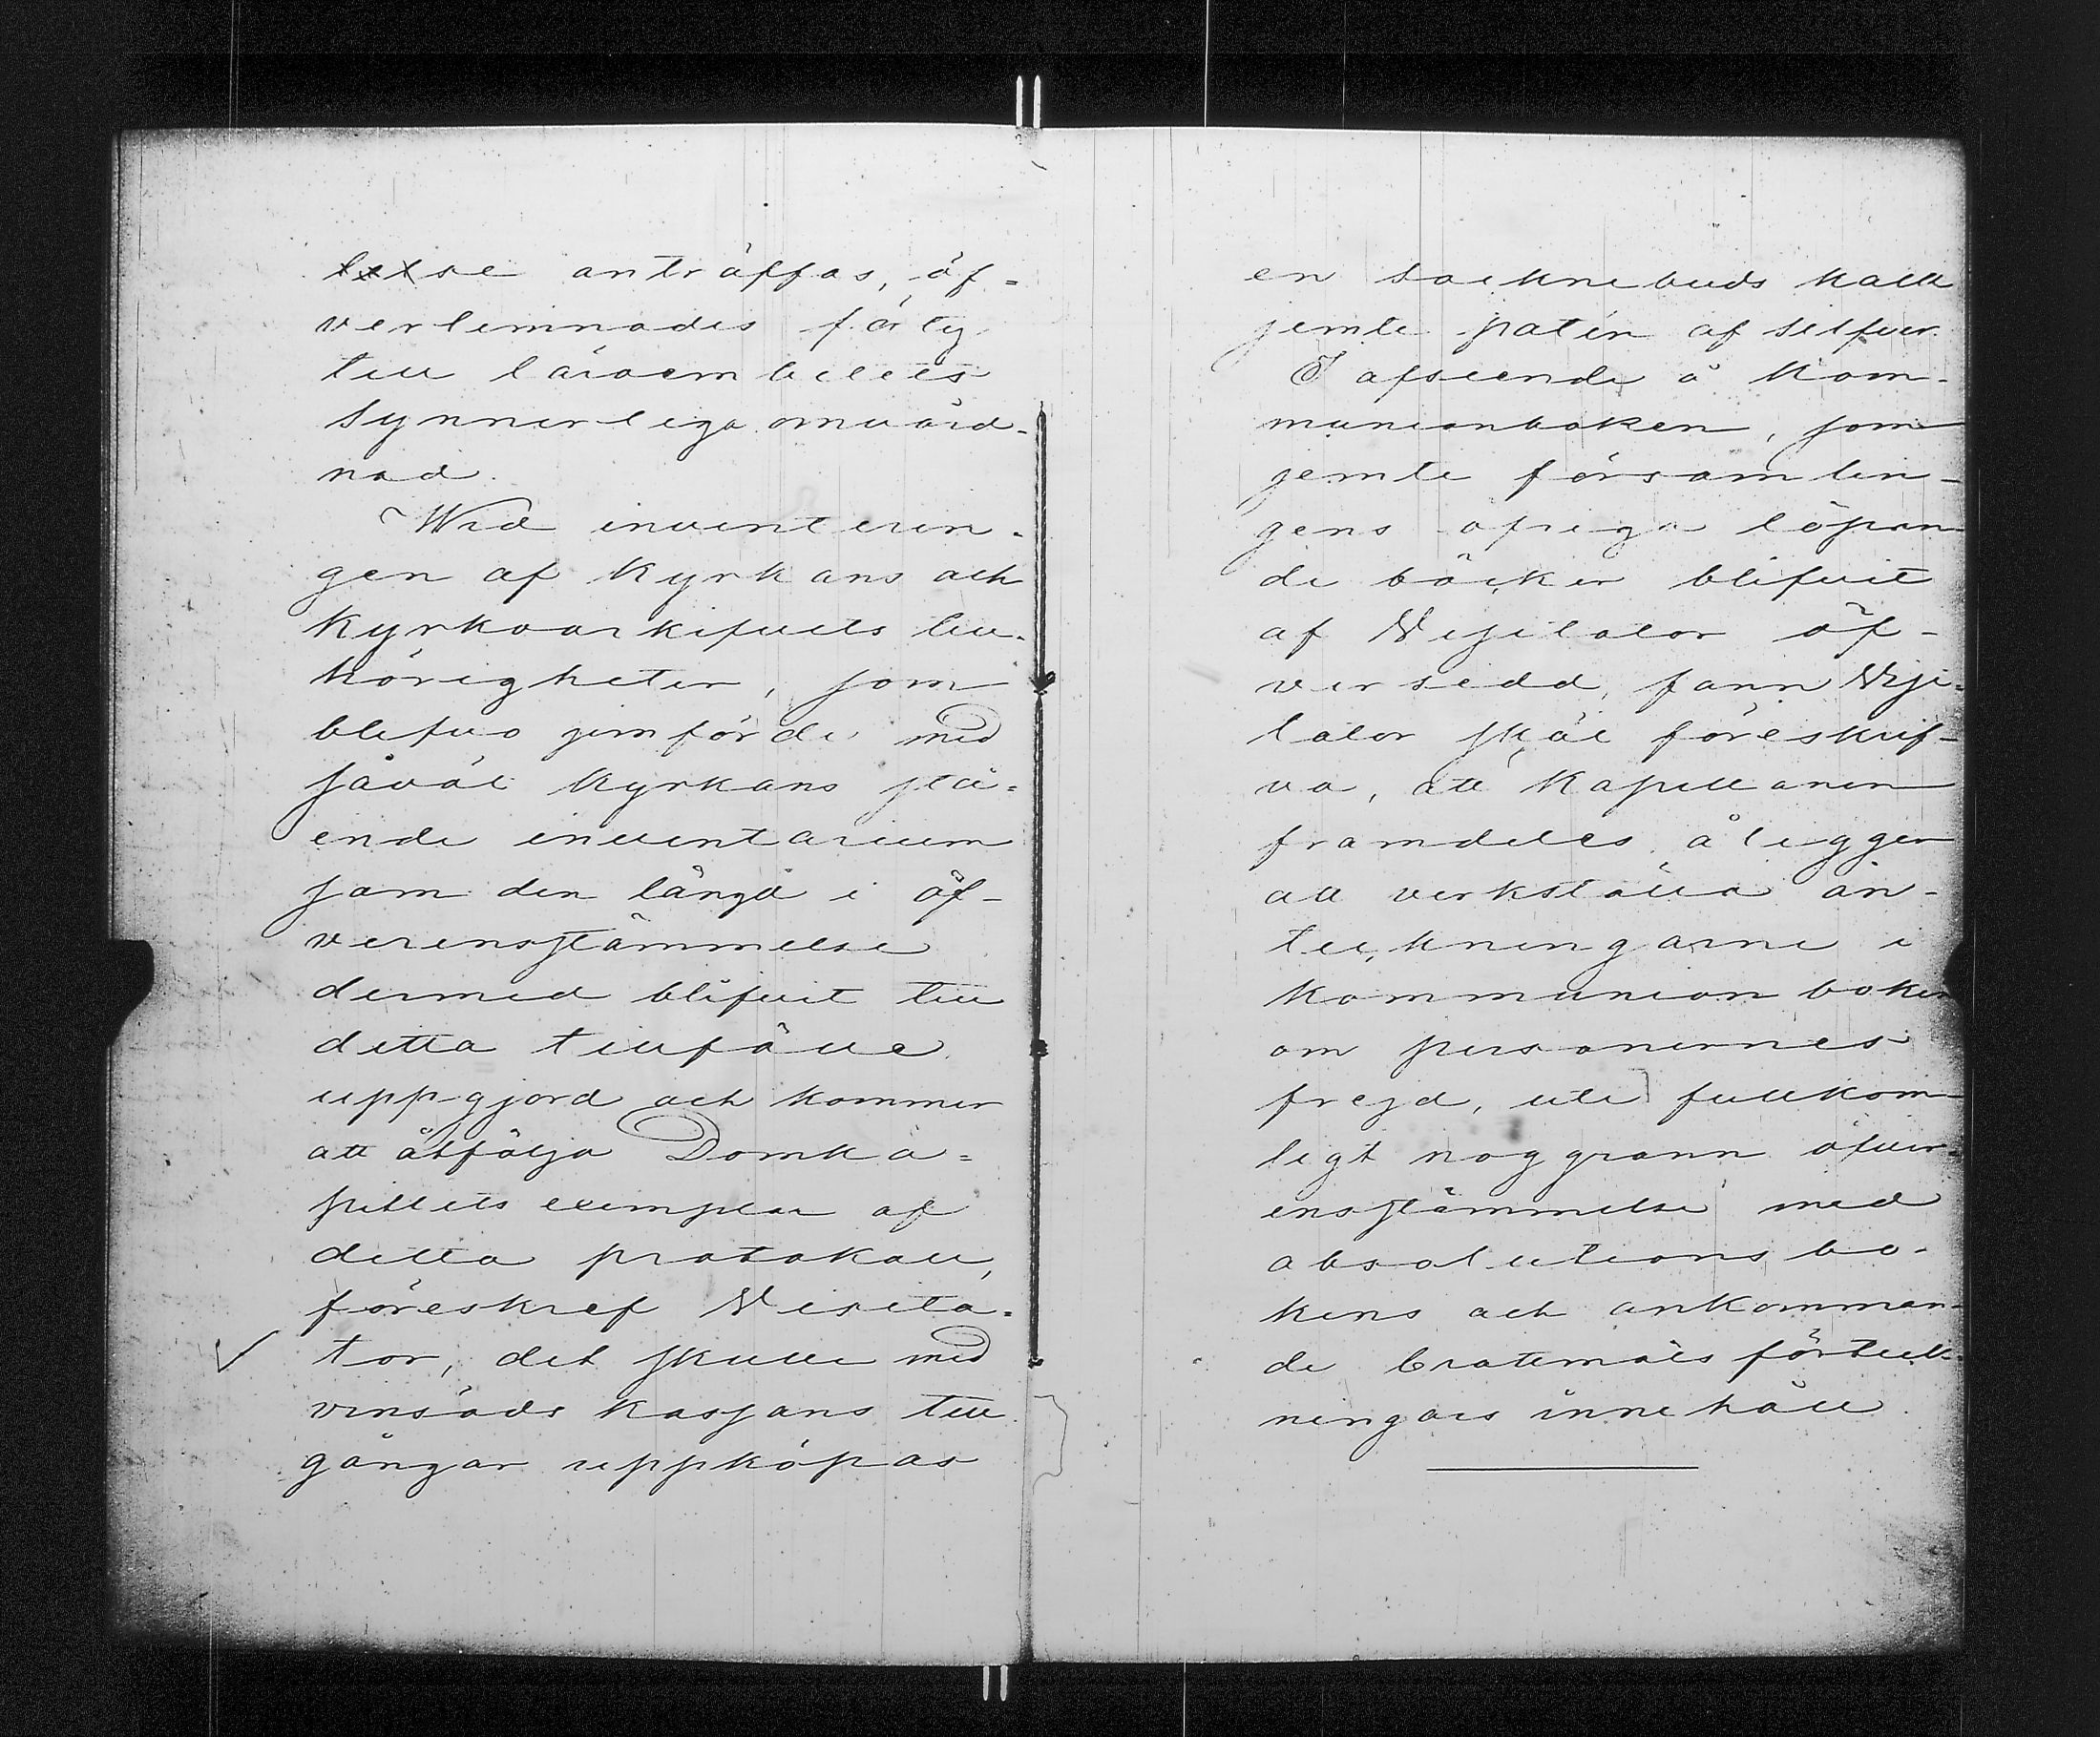 lelse anträffas, öf=
verlemnades förty
till läroembetets
synnerliga omvård-
nad.
Wid inventerin-
gen af Kyrkans och
Kyrkoarkifvets till-
hörigheter, som
blefvo jemförde med
såväl Kyrkans stå=
ende inventarium
som den längd i öf-
verensstämmelse
dermed blifvit till
detta tillfälle
uppgjord och kommer
att åtfölja Domka=
pitlets exemplar af
detta protokoll,
föreskref Visita=
tor, det skulle med
vinsäds kassans till
gångar uppköpas
en socknebuds kalk
jemte patén af silfver.
I afseende å Kom-
munionboken, som
jemte församlin-
gens öfriga löpan
de böcker blifvit
af Visitator öf-
versedd, fann Visi-
tator skäl föreskrif-
va, att Kapellanen
framdeles åligger
att verkställa an-
teckningarne i
Kommunion boken
om personernes
frejd, uti fullkom
ligt noggrann öfver-
ensstämmelse med
absolutions bo-
kens och ankomman-
de brottmåls förteck-
ningars innehåll.